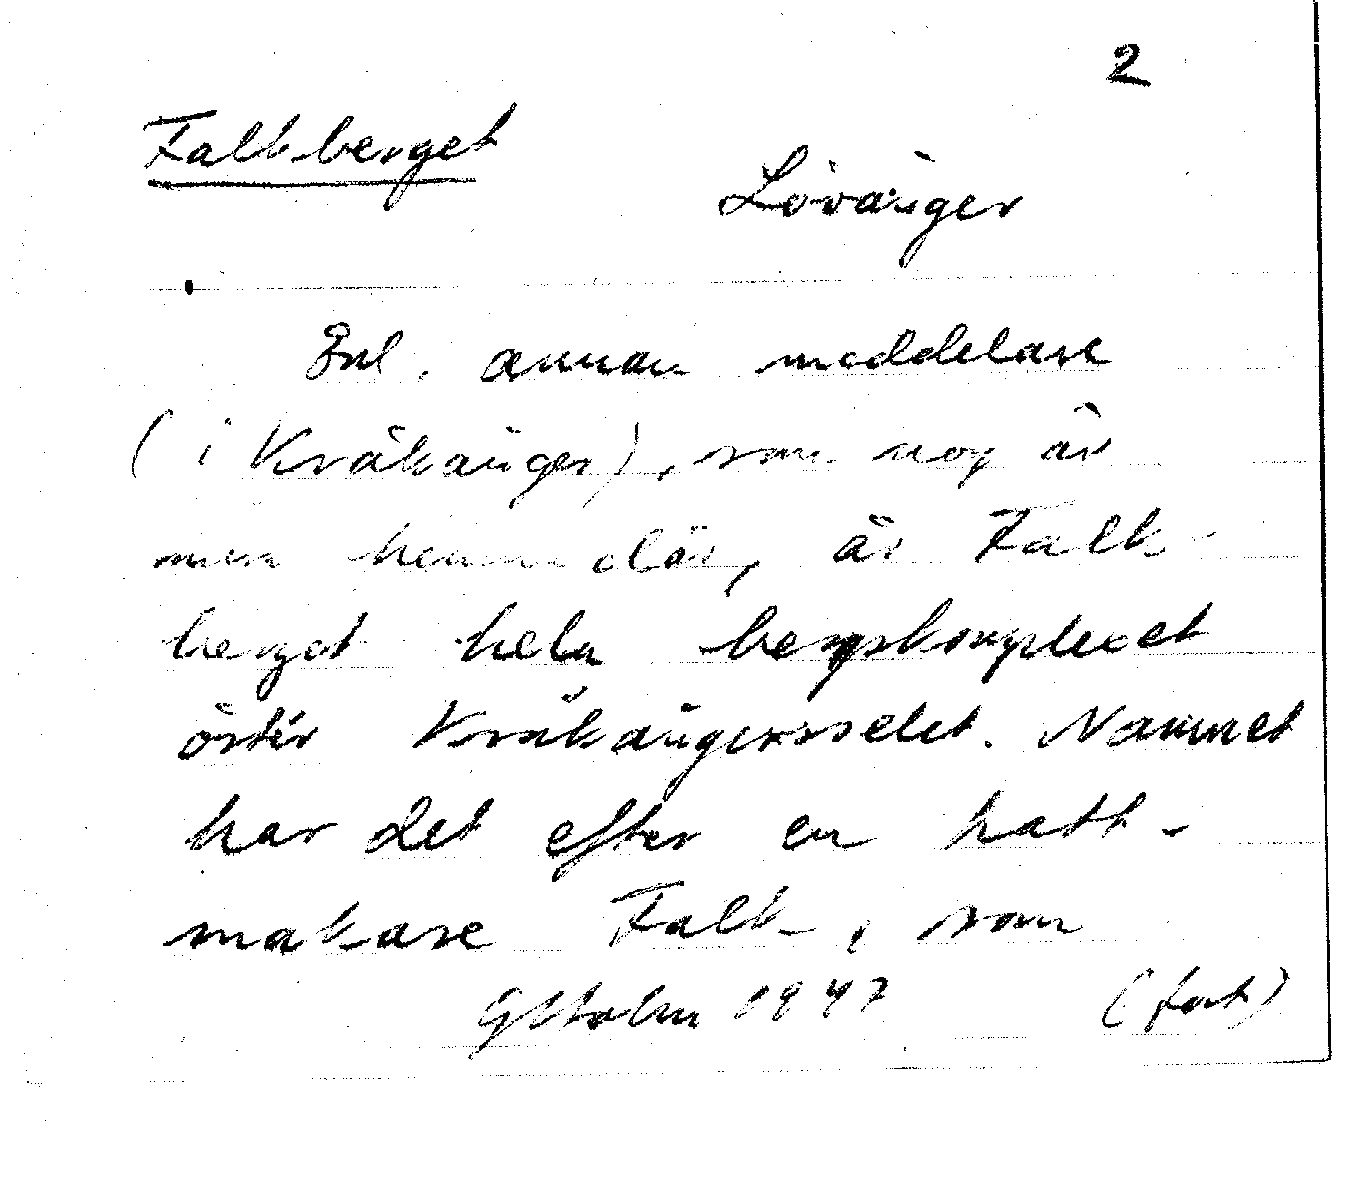 2
Falkberget
Lövånger
Enl. annan meddelare
(i Kråkånger), som nog är
mera hemma där, är Falk-
berget hela bergskomplexet
öster Kråkångersselet. Namnet
har det efter en hatt-
makare Falk, som
1947 (forts)